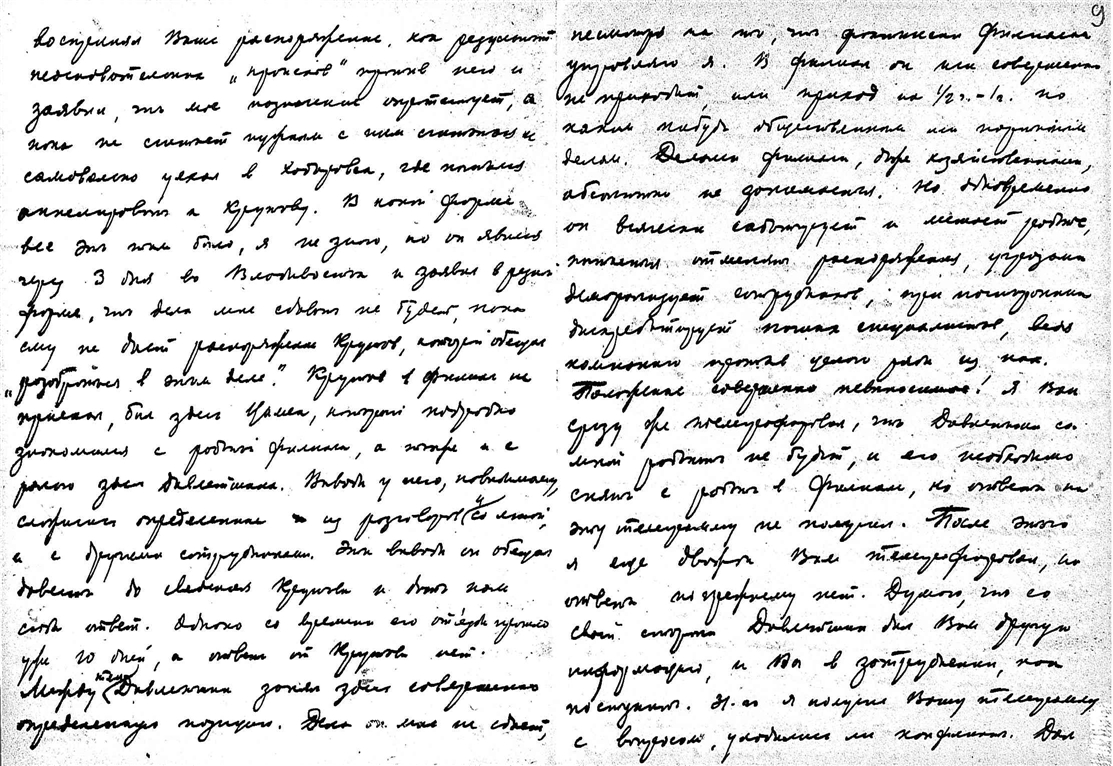 воспринял Ваше распоряжение, как результат
неосновательных „происков" против него и
заявил, что мое назначение опротестует, а
пока не считает нужным с ним считаться и
самовольно уехал в Хабаровск, где пытался
апеллировать к Крупову. В какой форме
все это там было, я не знаю, но он явился
через 3 дня во Владивосток и заявил в резкой
форме, что дела мне сдавать не будет, пока
ему не даст распоряжения Крупов, который обещал
„разобраться в этом деле". Крупов в филиал не
приехал, был здесь, который подробно
знакомился с работой филиала, а также и с
ролью здесь Давлетшина. Выводы у него, повидимому,
сложились определенные из разговоров и со мной,
и с другими сотрудниками. Эти выводы он обещал
довести до сведения Крупова и дать нам
сюда ответ. Однако со времени его отъезда прошло
уже 10 дней, а ответа от Крупова нет.
Между тем Давлетшин занял здесь совершенно
определенную позицию. Дела он мне не сдает,
9
несмотря на то, что фактически филиалом
управляю я. В филиал он или совершенно
не приходит, или приход. на 1/2 ч. - 1 ч. по
каким нибудь общественным или партийным
делам. Делами филиала, даже хозяйственными,
абсолютно не занимается. Но одновременно
он всячески саботирует и мешает работе,
пытается отменять распоряжения, угрозами
деморализует сотрудников, при посторонних
дискредитирует наших специалистов, ведя
кампанию против целого ряда из них.
Положение совершенно невыносимое! Я Вам
сразу же телеграфировал, что Давлетшин со
мной работать не будет, и его необходимо
снять с работы в Филиале, но ответа на
эту телеграмму не получил. После этого
я еще дважды Вам телеграфировал, но
ответа по прежнему нет. Думаю, что со
своей стороны Давлетшин дал Вам другую
информацию, и Вы в затруднении, как
поступить. я получил Вашу телеграмму
с вопросом, уладился ли конфликт. Дал